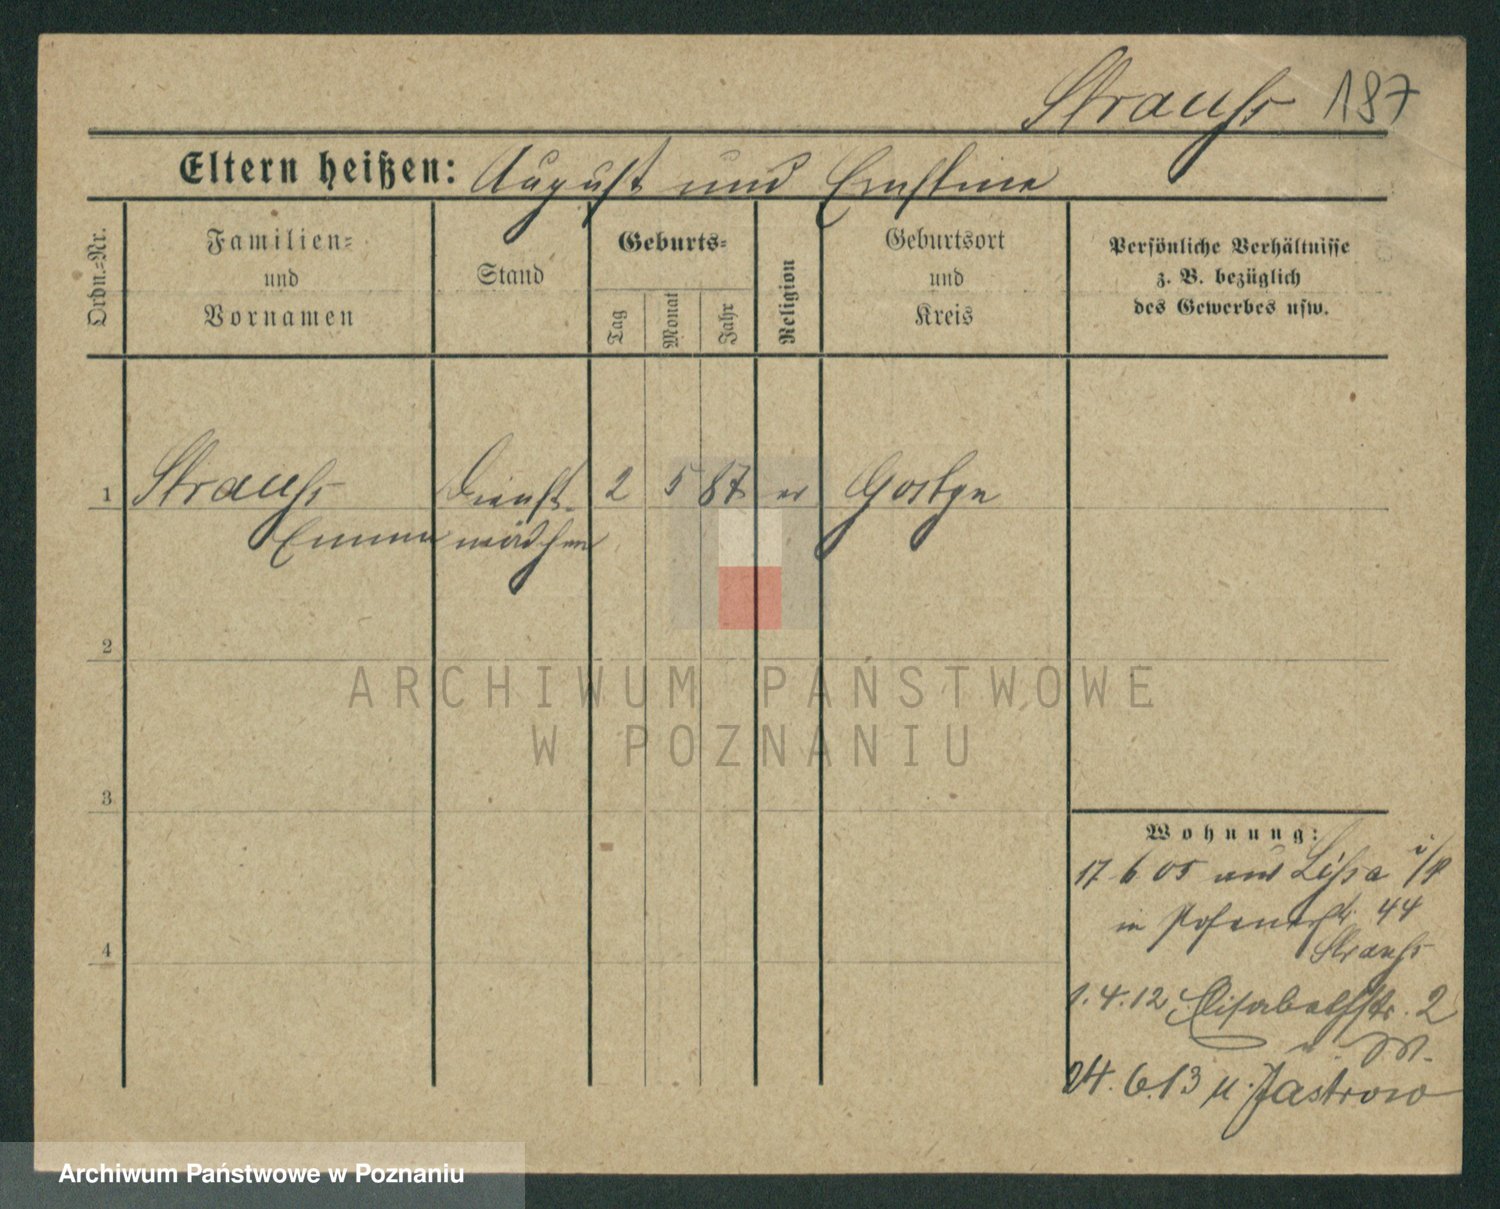 Strauß 187
Eltern heißen: August und Ernstine
Ordn.=Nr.
Familien=
und
Vornamen
Stand
Geburts=
Tag
Monat
Jahr
Religion
Geburtsort
und
Kreis
Persönliche Verhältnisse
z. B. bezüglich
des Gewerbes usw.
1 Strauß Dienst- 2 5 87 ev Gostyn
Emma mädchen
2
ARCHIWUM PAŃSTWOWE
W POZNANIU
3
Wohnung:
17 6 05 aus Lissa i/P
in Posenerstr. 44
Strauß
4
1.4.12 Elisabethstr. 2
M.
24.6.13 n. Jastrow
Archiwum Państwowe w Poznaniu